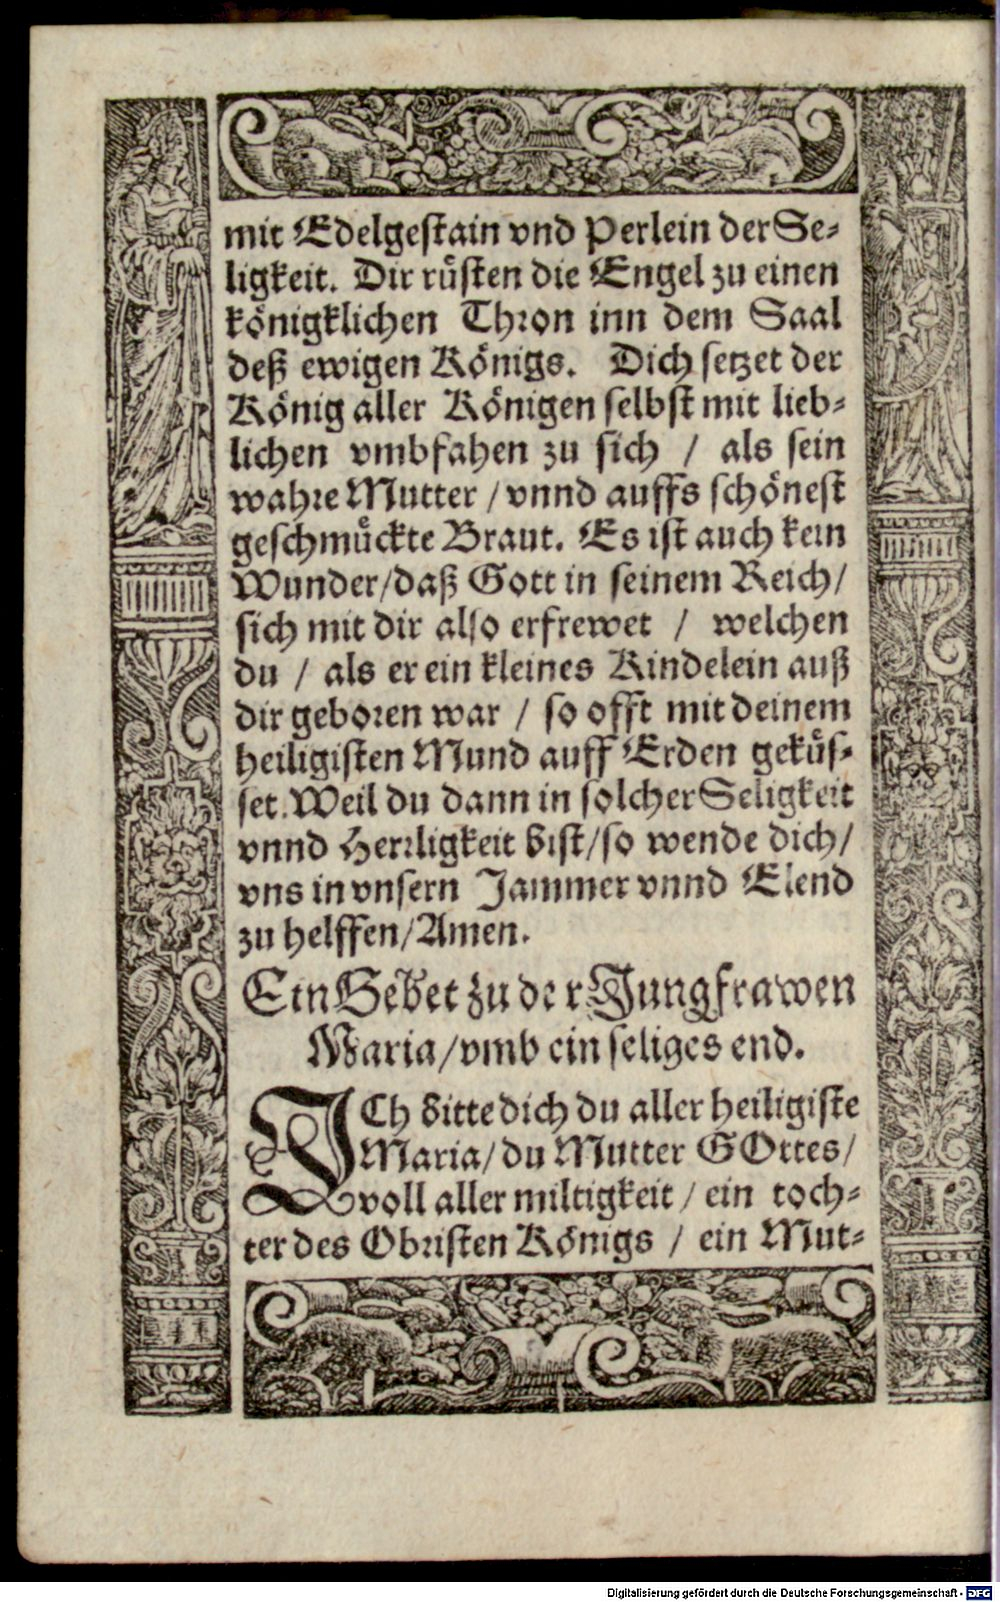 mit Edelgestain vnd Perlein der Se-
ligkeit. Dir ruͤsten die Engel zu einen
königklichen Thron inn dem Saal
deß ewigen Königs. Dich setzet der
König aller Königen selbst mit lieb-
lichen vmbfahen zu sich / als sein
wahre Mutter / vnnd auffs schönest
geschmuͤckte Braut. Es ist auch kein
Wunder/daß Gott in seinem Reich/
sich mit dir also erfrewet / welchen
du / als er ein kleines Kindelein auß
dir geboren war / so offt mit deinem
heiligisten Mund auff Erden gekuͤs-
set. Weil du dann in solcher Seligkeit
vnnd Herrligkeit bist/so wende dich/
vns in vnsern Jammer vnnd Elend
zu helffen/Amen.
Ein Gebet zu der Jungfrawen
Maria/vmb ein seliges end.
ICh bitte dich du aller heiligiste
Maria/du Mutter GOttes/
voll aller miltigkeit / ein toch-
ter des Obristen Königs / ein Mut-
Digitalisierung gefördert durch die Deutsche Forschungsgemeinschaft - DFG